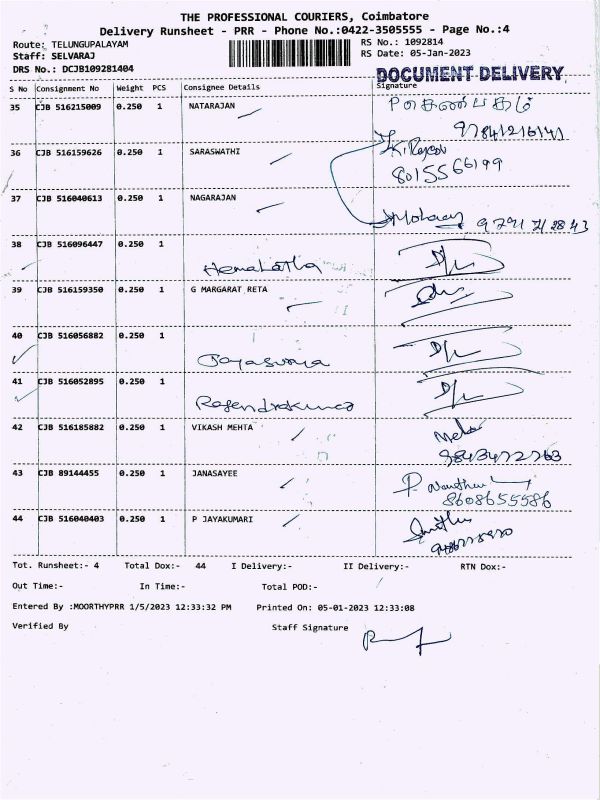 THE PROFESSIONAL COURIERS, Coimbatore
Delivery Runsheet - PRR - Phone No.:0422-3505555 - Page No.:4
Route: TELUNGUPALAYAM RS No.: 1092814
Staff: SELVARAJ RS Date: 05-Jan-2023
DRS No.: DCJB109281404
DOCUMENT DELIVERY
S No Consignment No Weight PCS Consignee Details Signature
35 CJB 516215009 0.250 1 NATARAJAN
36 CJB 516159626 0.250 1 SARASWATHI
8015566199
37 CJB 516040613 0.250 1 NAGARAJAN
38 CJB 516096447 0.250 1
Hemalatha
39 CJB 516159350 0.250 1 G MARGARAT RETA
40 CJB 516056882 0.250 1
Jayasurya
41 CJB 516052895 0.250 1
Rajendrakumar
42 CJB 516185882 0.250 1 VIKASH MEHTA
9843472763
43 CJB 89144455 0.250 1 JANASAYEE
8608655586
44 CJB 516040403 0.250 1 P JAYAKUMARI
Tot. Runsheet:- 4 Total Dox:- 44 I Delivery:- II Delivery:- RTN Dox:-
Out Time:- In Time:- Total POD:-
Entered By :MOORTHYPRR 1/5/2023 12:33:32 PM Printed On: 05-01-2023 12:33:08
Verified By Staff Signature